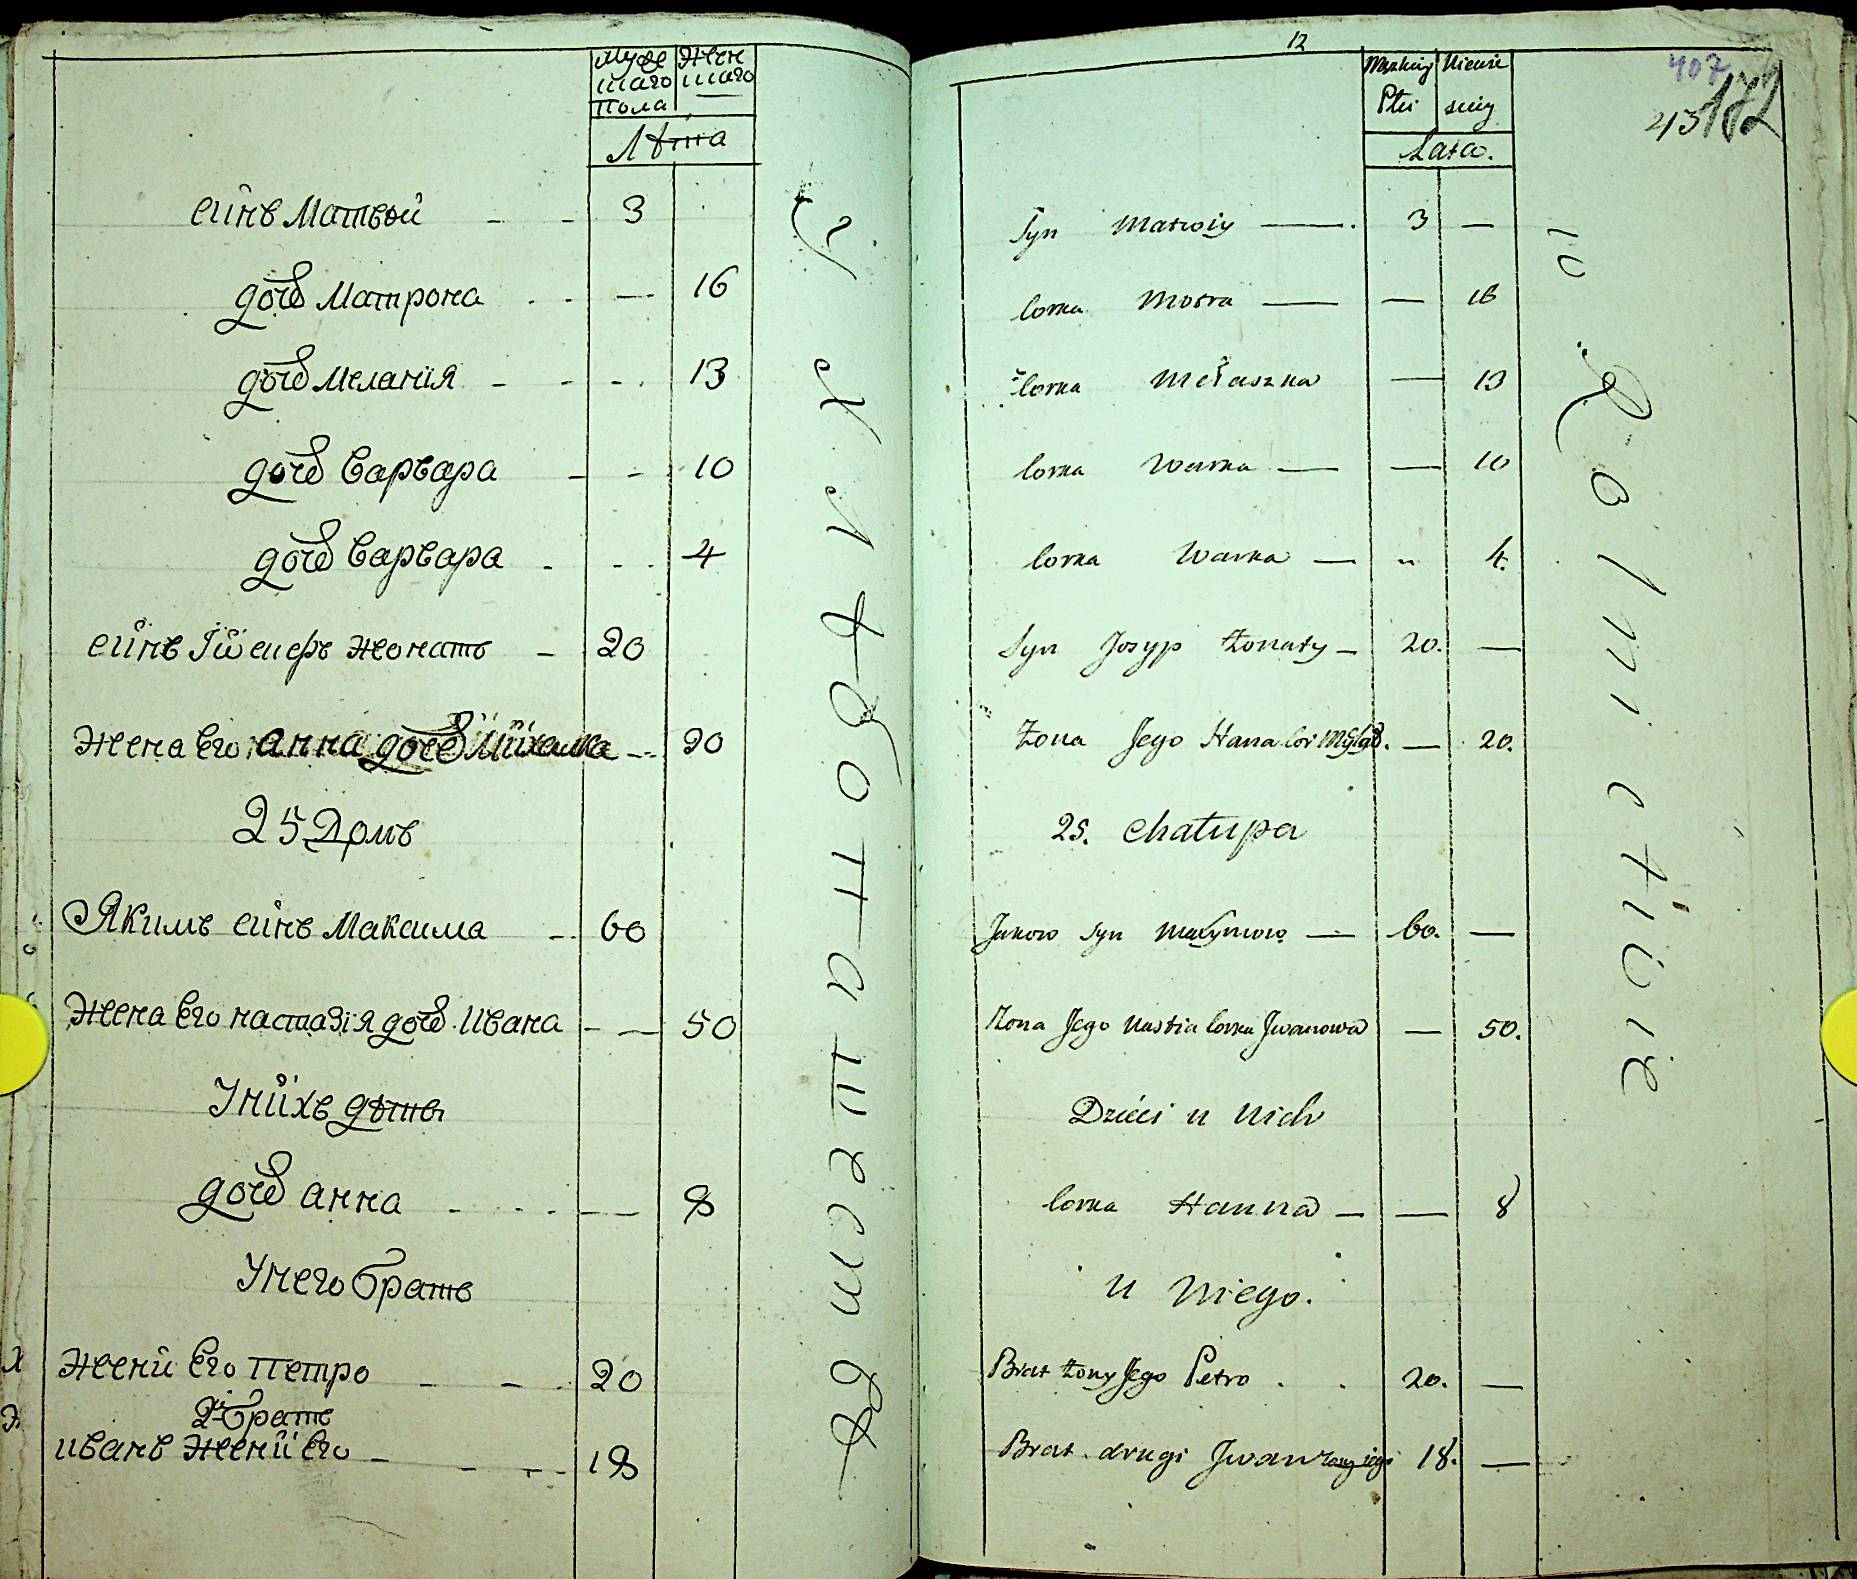 Муже Жен
скаго скаго
Пола
Лѣта
сынъ Матвѣй - - 3
дочь Матрона - - — 16
дочь Меланія - - - 13
дочь Варвара - - 10
дочь Варвара - - - 4
сынъ Іосифъ женатъ - 20
жена Его анна дочь Михайла — 20
25 Домъ
Якимъ сынъ Максима - 60
Жена Его настазія дочь Ивана - — 50
У нихъ дѣтѣ
дочь анна - - - — 8
У него братъ
жены Его Петро - - - 20
2й братъ
иванъ жены Его - - - 18
хлѣбопашествѣ
12
Męzkiey Niewie
Płci skiey
Lata.
407
43
172
Syn Matwiy — 3 —
Corka Motra — — 16
Corka Melaszka — 13
Corka Warka — — 10
Corka Warka — „ 4.
Syn Josyp Żonaty — 20. —
Żona Jego Hana Cor — 20.
25. Chałupa
syn — 60. —
Żona Jego Nastia Corka Jwanowa — 50.
Dzieci u Nich
Corka Hanna — — 8
u Niego.
Brat Żony Jego Petro . . 20. —
Brat drugi Jwan Żony jego 18. —
Rolnictwie